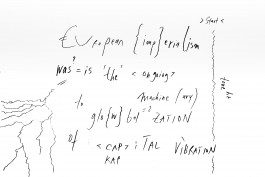 > start <
European {imp}erialism
was? = is 'the' < ongoing >
to machine (ary)
glo[w] bal =? ZATION
of < CAP > i TAL VIBRATION
KAP